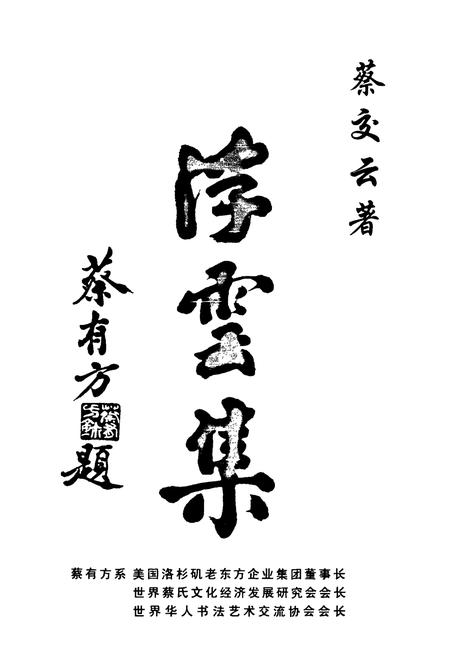 蔡交云著
浮雲集
蔡有方
題
蔡有方系 美国洛杉矶老东方企业集团董事长
世界蔡氏文化经济发展研究会会长
世界华人书法艺术交流协会会长